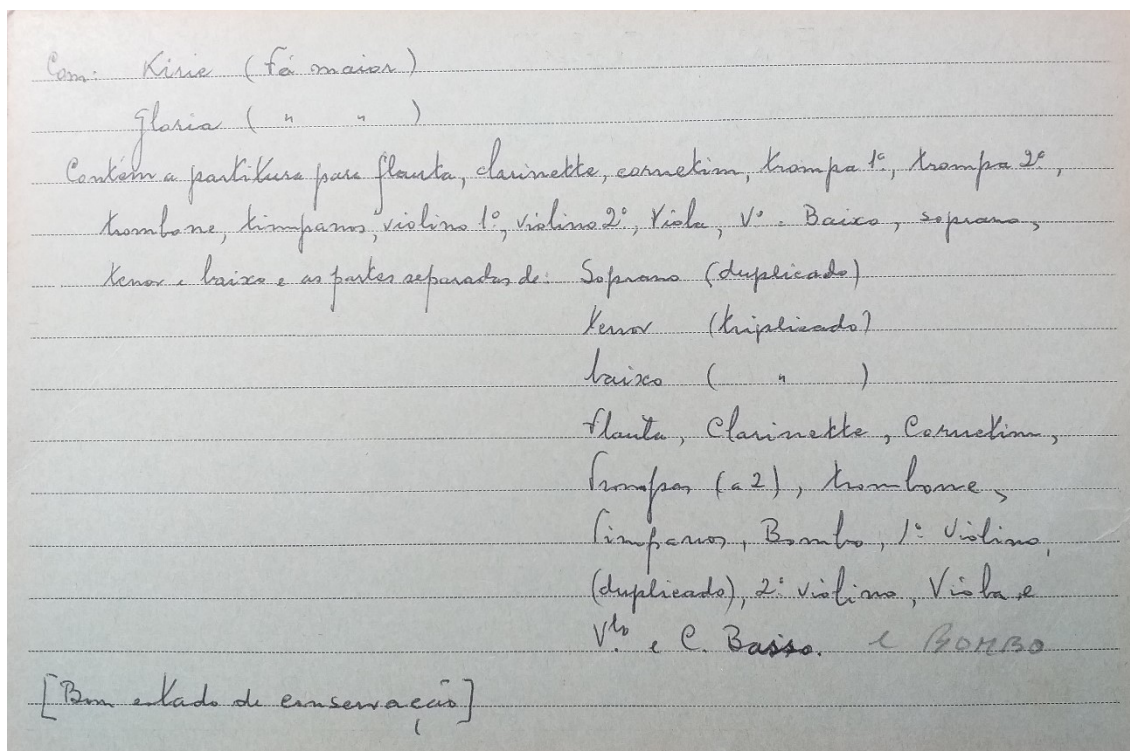 Com: Kirie (fá maior)
Gloria ( " " )
Contém a partitura para flauta, clarinette, cornetim, trompa 1ª, trompa 2ª,
trombone, timpanos, violino 1º, violino 2º, Viola, Vº. Baixo, soprano,
tenor e baixo e as partes separadas de: Soprano (duplicado)
tenor (triplicado)
baixo ( " )
flauta, Clarinette, Cornetim,
Trompas (a 2), trombone,
Timpanos, Bombo, 1º Violino,
(duplicado), 2º violino, Viola e
Vlo. e C. Basso. e BOMBO
[Bom estado de conservação]